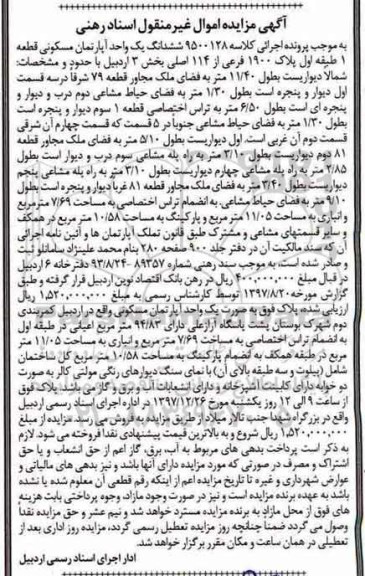 آگهی مزایده اموال غیر منقول اسناد رهنی
به موجب پرونده اجرائی کلاسه ۹۵۰۰۱۲۸ ششدانگ یک واحد آپارتمان مسکونی قطعه
۱ طبقه اول پلاک ۱۹۰۰ فرعی از ۱۱۴ اصلی بخش ۳ اردبیل با حدود و مشخصات:
شمالا دیواریست بطول ۱۱/۴۰ متر به فضای ملک مجاور قطعه ۷۹ شرقا درسه قسمت
اول دیوار و پنجره است بطول ۱/۳۰ متر به فضای حیاط مشاعی دوم درب و دیوار و
پنجره ای است بطول ۶/۵۰ متر به تراس اختصاصی قطعه ۱ سوم دیوار و پنجره است
بطول ۱/۳۰ متر به فضای حیاط مشاعی جنوبا در ۵ قسمت که قسمت چهارم آن شرقی
قسمت دوم آن غربی است. اول دیواریست بطول ۵/۱۰ متر به فضای ملک مجاور قطعه
۸۱ دوم دیواریست بطول ۳/۱۰ متر به راه پله مشاعی سوم درب و دیوار است بطول
۲/۸۵ متر به راه پله مشاعی چهارم دیواریست بطول ۳/۱۰ متر به راه پله مشاعی پنجم
دیواریست بطول ۳/۴۰ متر به فضای ملک مجاور قطعه ۸۱ غربا دیوار و پنجره است بطول
۹/۱۰ متر به فضای حیاط مشاعی. به انضمام تراس اختصاصی به مساحت ۷/۶۹ مترمربع
و انباری به مساحت ۱۱/۰۵ متر مربع و پارکینگ به مساحت ۱۰/۵۸ متر مربع در همکف
و سایر قسمتهای مشاعی و مشترک طبق قانون تملک آپارتمان ها و آئین نامه اجرائی
آن که سند مالکیت آن در دفتر جلد ۹۰۰ صفحه ۲۸۰ بنام محمد علینژاد سامانلو ثبت
و صادر شده است، به موجب سند رهنی شماره ۸۹۳۵۷-۹۳/۸/۲۴ دفترخانه ۶ اردبیل
در قبال مبلغ ۴۰۰,۰۰۰,۰۰۰ ریال در رهن بانک اقتصاد نوین اردبیل قرار گرفته و طبق
گزارش مورخه ۱۳۹۷/۸/۲۰ توسط کارشناس رسمی به مبلغ ۱,۵۲۰,۰۰۰,۰۰۰ ریال
ارزیابی شده، پلاک فوق به صورت یک واحد آپارتمان مسکونی واقع در اردبیل کمربندی
دوم شهرک بوستان پشت پاساژ آرازعلی دارای ۹۴/۸۳ متر مربع اعیانی در طبقه اول
به انضمام تراس اختصاصی به مساحت ۷/۶۹ متر مربع و انباری به مساحت ۱۱/۰۵ متر
مربع در طبقه همکف به انضمام پارکینگ به مساحت ۱۰/۵۸ متر مربع کل ساختمان
شامل (پیلوت و سه طبقه بالای آن) با نمای سنگ دیوارهای رنگی مولتی کالر به صورت
دو خوابه دارای کابینت آشپزخانه و دارای انشعابات آب، برق و گاز می باشد. پلاک فوق
از ساعت ۹ الی ۱۲ روز یکشنبه مورخ ۱۳۹۷/۱۲/۲۶ در اداره اجرای اسناد رسمی اردبیل
واقع در بزرگراه شهدا جنب تالار میلاد از طریق مزایده به فروش می رسد. مزایده از مبلغ
۱,۵۲۰,۰۰۰,۰۰۰ ریال شروع و به بالاترین قیمت پیشنهادی نقدا فروخته می شود. لازم
به ذکر است پرداخت بدهی های مربوط به آب، برق، گاز اعم از حق انشعاب و یا حق
اشتراک و مصرف در صورتی که مورد مزایده دارای آنها باشد و نیز بدهی های مالیاتی و
عوارض شهرداری و غیره تا تاریخ مزایده اعم از اینکه رقم قطعی آن معلوم شده یا نشده
باشد به عهده برنده مزایده است و نیز در صورت وجود مازاد، وجوه پرداختی بابت هزینه
های فوق از محل مازاد به برنده مزایده مسترد خواهد شد و نیم عشر و حق مزایده نقداً
وصول می گردد ضمنا چنانچه روز مزایده تعطیل رسمی گردد، مزایده روز اداری بعد از
تعطیلی در همان ساعت و مکان مقرر برگزار خواهد شد.
اداره اجرای اسناد رسمی اردبیل